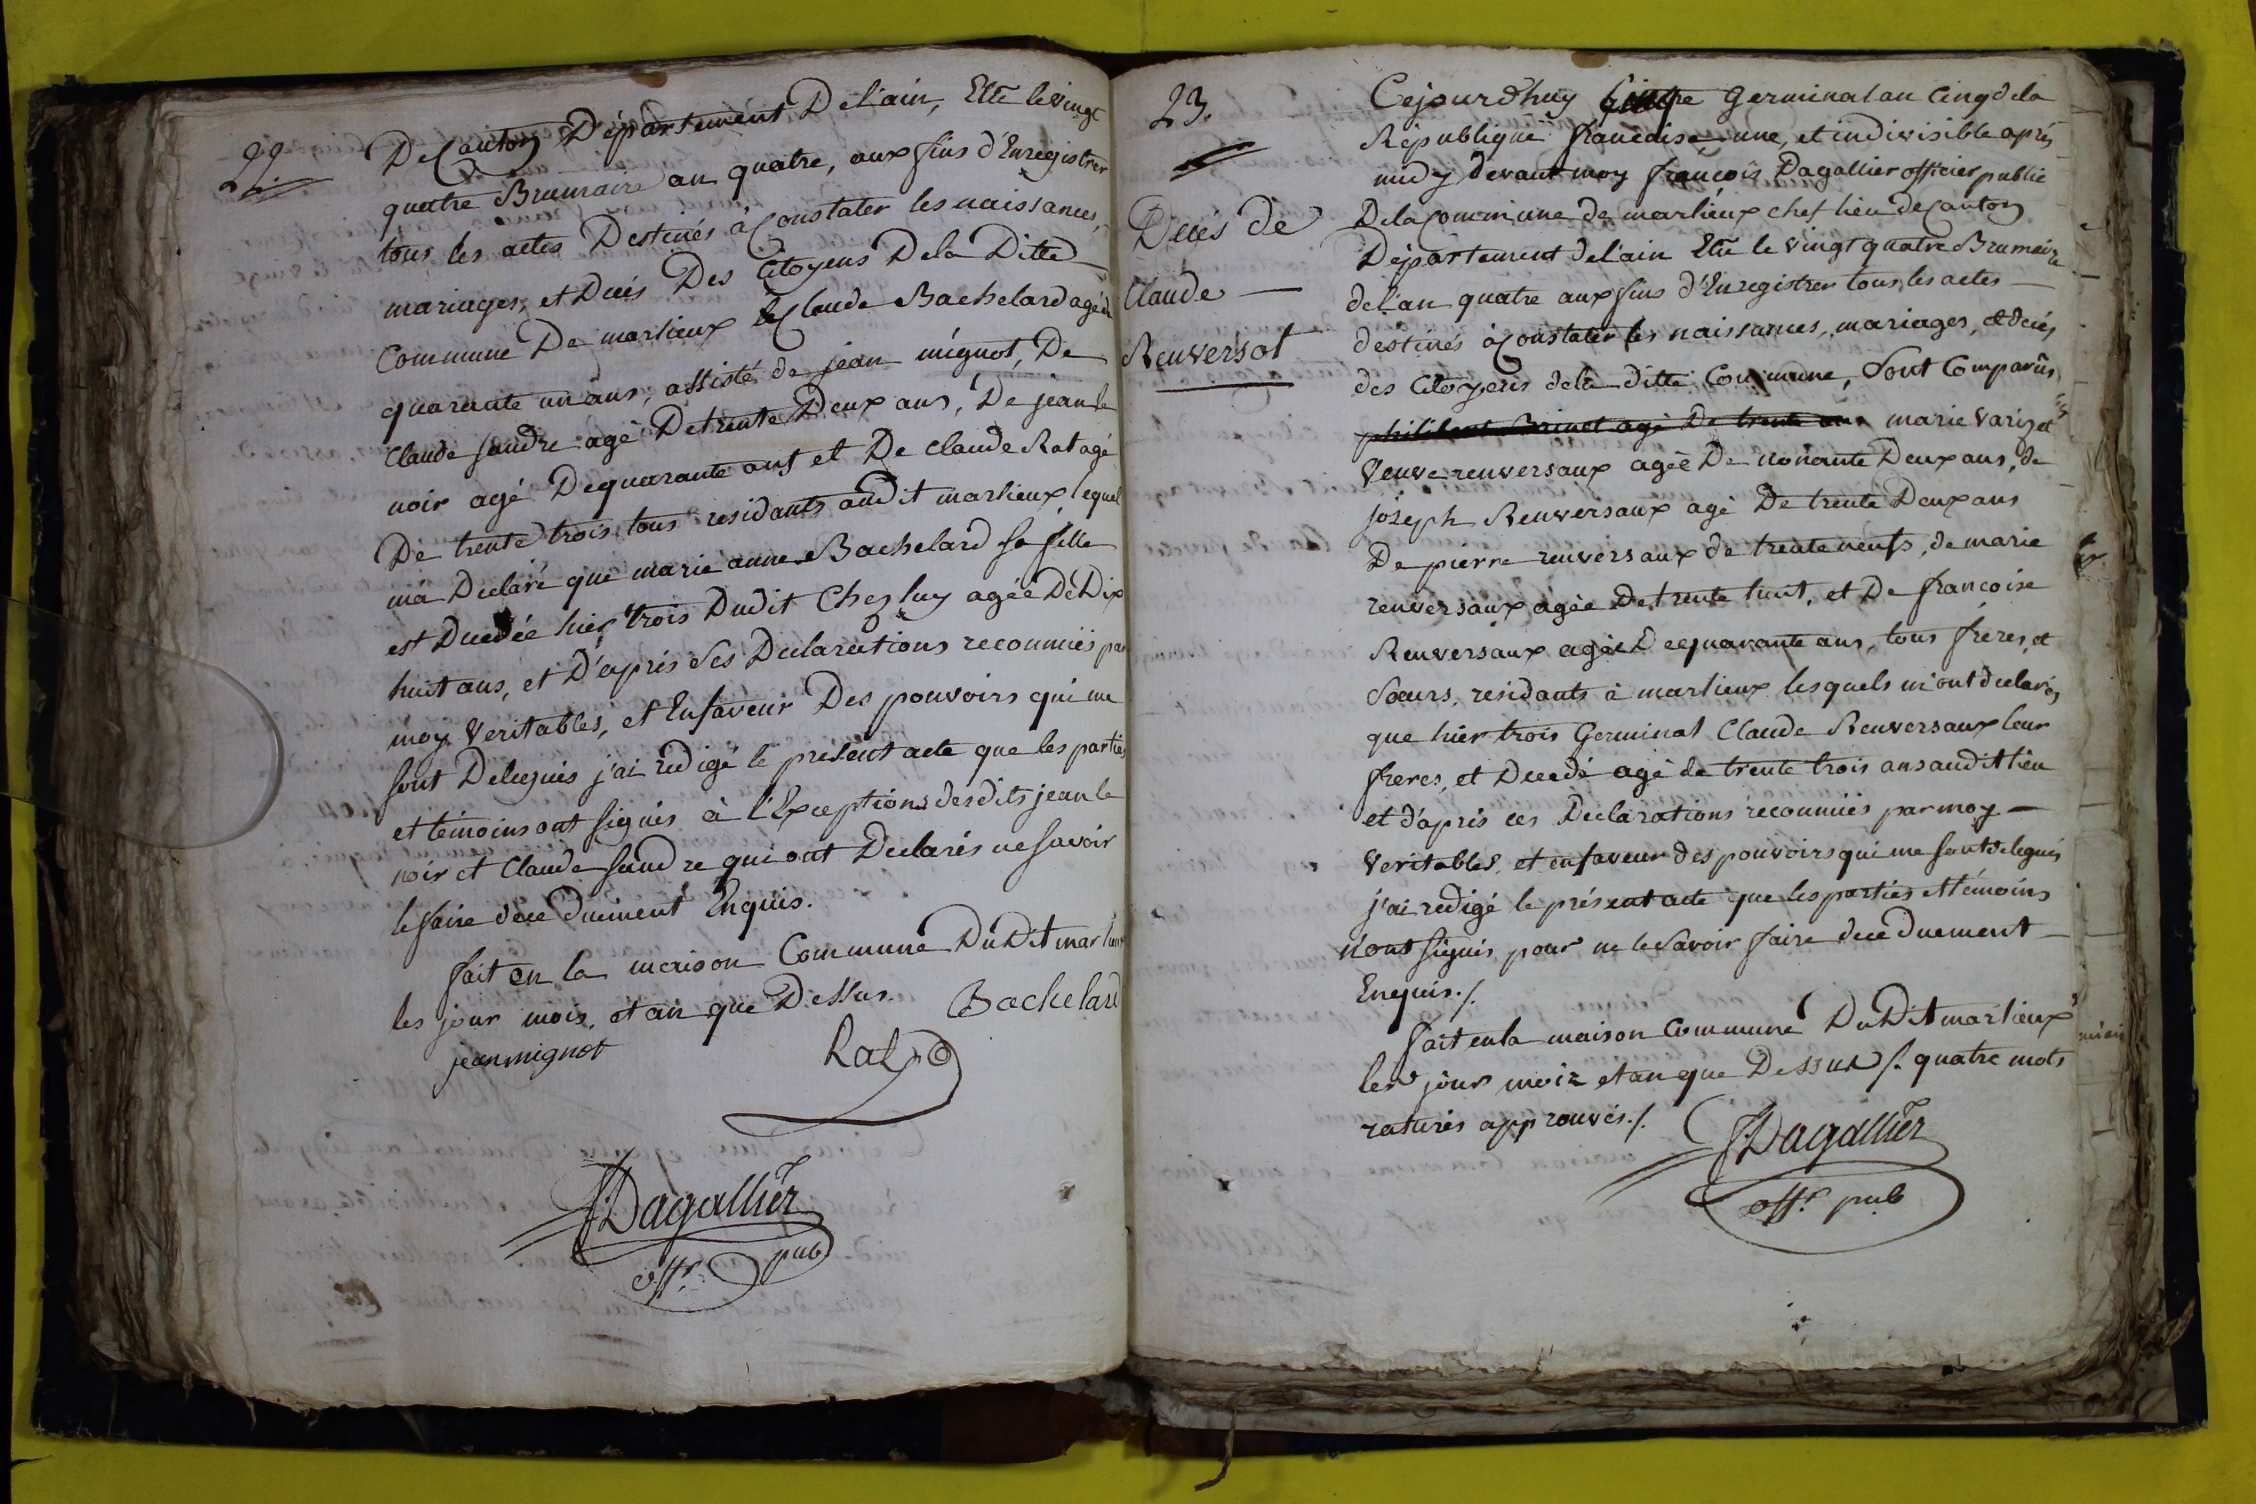 22.
De Canton Département De L'ain, Elû le vingt
quatre Brumaire an quatre, aux fins d'Enregistrer
tous les actes Destinés à Constater les naissances,
mariages, et Ducés Des Citoyens De la Ditte
Commune De marlieux Claude Bachelard agé de
quarante un ans, assisté de jean mignot, De
Claude sandre agé De trente Deux ans, De jean le
noir agé De quarante ans et De claude Rat agé
De trente trois, tous residants audit marlieux lequel
m'a Declaré que marie anne Bachelard sa fille
est Ducedée hier trois Dudit Chez luy agée De Dix
huit ans, et D'aprés ses Declarations reconnuës par
moy Veritables, et En faveur Des pouvoirs qui me
sont Delegués j'ai redigé le present acte que les parties
et témoins ont signés à l'Exception desdits jean le
noir et Claude sandre qui ont Declarés ne savoir
le faire dece duement Enquis.
fait en la maison Commune Du Dit marlieux
les jour mois, et an que Dessus. Bachelard
jean mignot Rat
F. Dagallier
offr. pub
23.
Decés de
Claude
Renversot
Cejourdhuy Germinal an Cinq de la
République française une, et indivisible aprés
midy devant moy françois Dagallier officier public
De la Commune de marlieux chef lieu de Canton
Département de L'ain Elû le vingt quatre Brumaire
de L'an quatre aux fins d'Enregistrer tous les actes
destinés à Constater les naissances, mariages, et decés,
des Citoyens de la ditte Commune, Sont Comparûs
philibert Brinet agé De trente ans marie Variset
Veuve renversaux agée De nonante Deux ans, de
joseph Renversaux agé De trente Deux ans
De pierre renversaux de trente neufs, de marie
renversaux agée De trente huit, et De françoise
Renversaux agée De quarante ans, tous fréres, et
Soeurs, residants à marlieux lesquels m'ont declarés
que hier trois Germinal Claude Renversaux leur
freres, et Ducedé agé de trente trois ans audit lieu
et d'aprés ces Declarations reconnuës par moy
Veritables, et en faveur des pouvoirs qui me sont delegués
j'ai redigé le présent acte que les parties et témoins
n'ont signés pour ne le Savoir faire dece duement
Enquis./.
fait en la maison Commune Du Dit marlieux
les jour mois et an que Dessus /. quatre mots
raturés approuvés./.
F. Dagallier
offr. pub